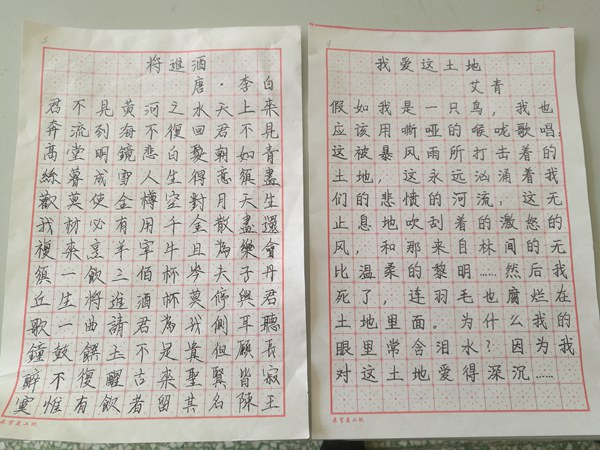 将進酒
唐·李白
君不見黄河之水天上来
奔流到海不復回君不見
高堂明鏡悲白髮朝如青
絲暮成雪人生得意須盡
歡莫使金樽空對月天生
我材必有用千金散盡還
復来烹羊宰牛且為樂會
須一飲三佰杯岑夫子丹
丘生將進酒杯莫停與君
歌一曲請君為我側耳聽
鐘鼓饌玉不足貴但願長
醉不復醒古来聖賢皆寂
寞惟有飲者留其名陳王
我爱这土地
艾青
假如我是一只鸟，我也
应该用嘶哑的喉咙歌唱：
这被暴风雨所打击着的
土地，这永远汹涌着我
们的悲愤的河流，这无
止息地吹刮着的激怒的
风，和那来自林间的无
比温柔的黎明……然后我
死了，连羽毛也腐烂在
土地里面。为什么我的
眼里常含泪水？因为我
对这土地爱得深沉……